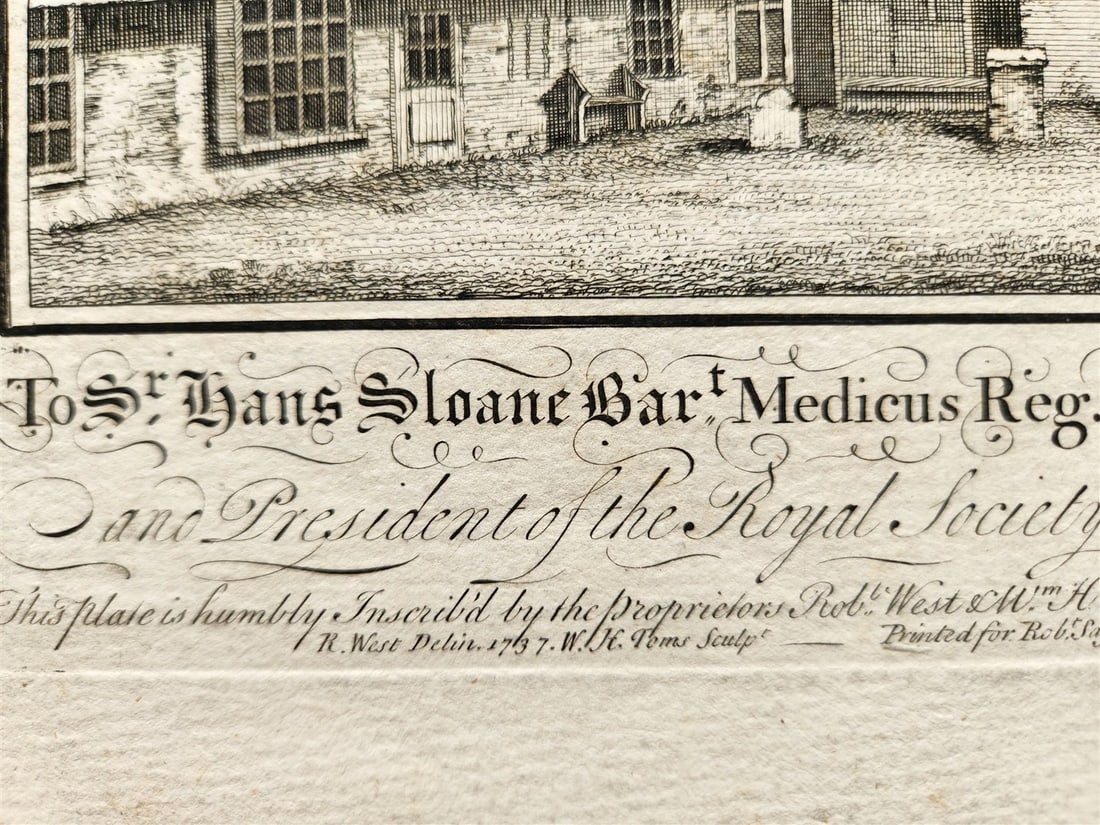 To Sr. Hans Sloane Bar.t Medicus Reg.
and President of the Royal Society
This plate is humbly Inscrib'd by the proprietors Robt. West & Wm. H
R. West Delin. 1737. W. H. Toms Sculpt
Printed for Robt. Sa